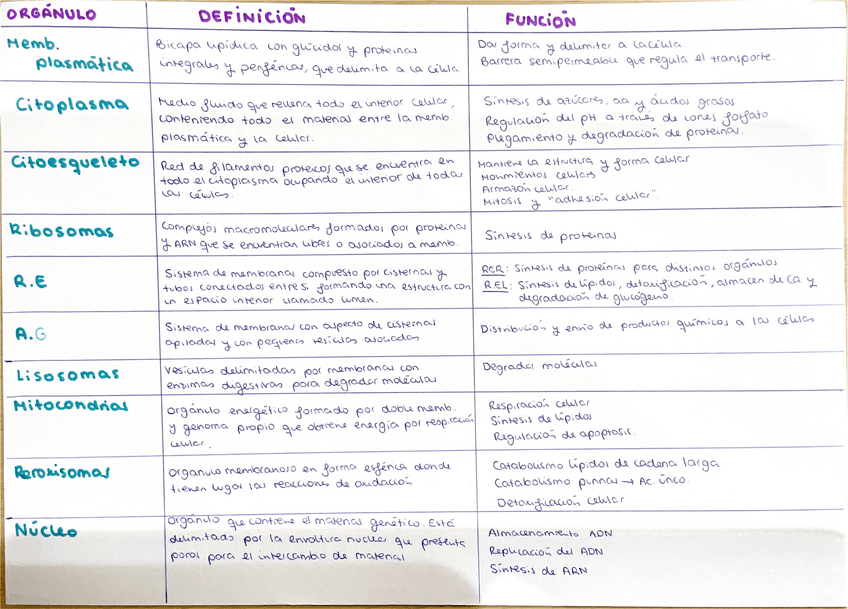 ORGÁNULO DEFINICIÓN FUNCIÓN
Memb.
plasmática
Bicapa lipídica con glúcidos y proteínas
integrales y periféricas, que delimita a la célula
Dar forma y delimitar a la célula
Barrera semipermeable que regula el transporte.
Citoplasma
Medio fluido que rellena todo el interior celular,
conteniendo todo el material entre la memb.
plasmática y la celular.
Síntesis de azúcares, aa y ácidos grasos
Regulación del pH a través de iones fosfato
Plegamiento y degradación de proteínas.
Citoesqueleto
Red de filamentos proteicos que se encuentra en
todo el citoplasma ocupando el interior de todas
las células.
Mantiene la estructura y forma celular
Movimientos celulares
Armazón celular.
Mitosis y "adhesión celular".
Ribosomas
Complejos macromoleculares formados por proteínas
y ARN que se encuentran libres o asociados a memb.
Síntesis de proteínas
R.E
Sistema de membranas compuesto por cisternas y
tubos conectados entre sí formando una estructura con
un espacio interior llamado lumen.
RER: Síntesis de proteínas para distintos orgánulos
REL: Síntesis de lípidos, detoxificación, almacen de Ca y
degradación de glucógeno.
A.G
Sistema de membranas con aspecto de cisternas
apiladas y con pequeñas vesículas asociadas
Distribución y envío de productos químicos a las células
Lisosomas
Vesículas delimitadas por membranas con
enzimas digestivas para degradar moléculas
Degradar moléculas
Mitocondrias
Orgánulo energético formado por doble memb.
y genoma propio que obtiene energía por respiración
celular.
Respiración celular
Síntesis de lípidos
Regulación de apoptosis.
Peroxisomas
Orgánulo membranoso en forma esférica donde
tienen lugar las reacciones de oxidación
Catabolismo lípidos de cadena larga
Catabolismo purinas → Ac. úrico.
Detoxificación celular
Núcleo
Orgánulo que contiene el material genético. Está
delimitado por la envoltura nuclear que presenta
poros para el intercambio de material
Almacenamiento ADN
Replicación del ADN
Síntesis de ARN